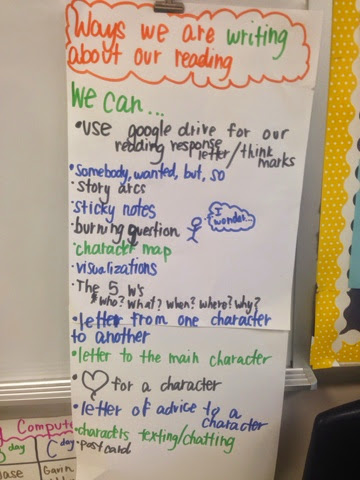 Ways we are writing
about our reading
We can...
•use google drive for our
reading response
letter/think
marks
•Somebody, wanted, but, so
•story arcs
•sticky notes
•burning question
I
wonder...
•character map
•visualizations
•The 5 W's
*who? what? when? where? why?
•letter from one character
to another
•letter to the main character
• ♡ for a character
•letter of advice to a
character
•characters texting/chatting
•postcard
Comput
day
C day
Gavin